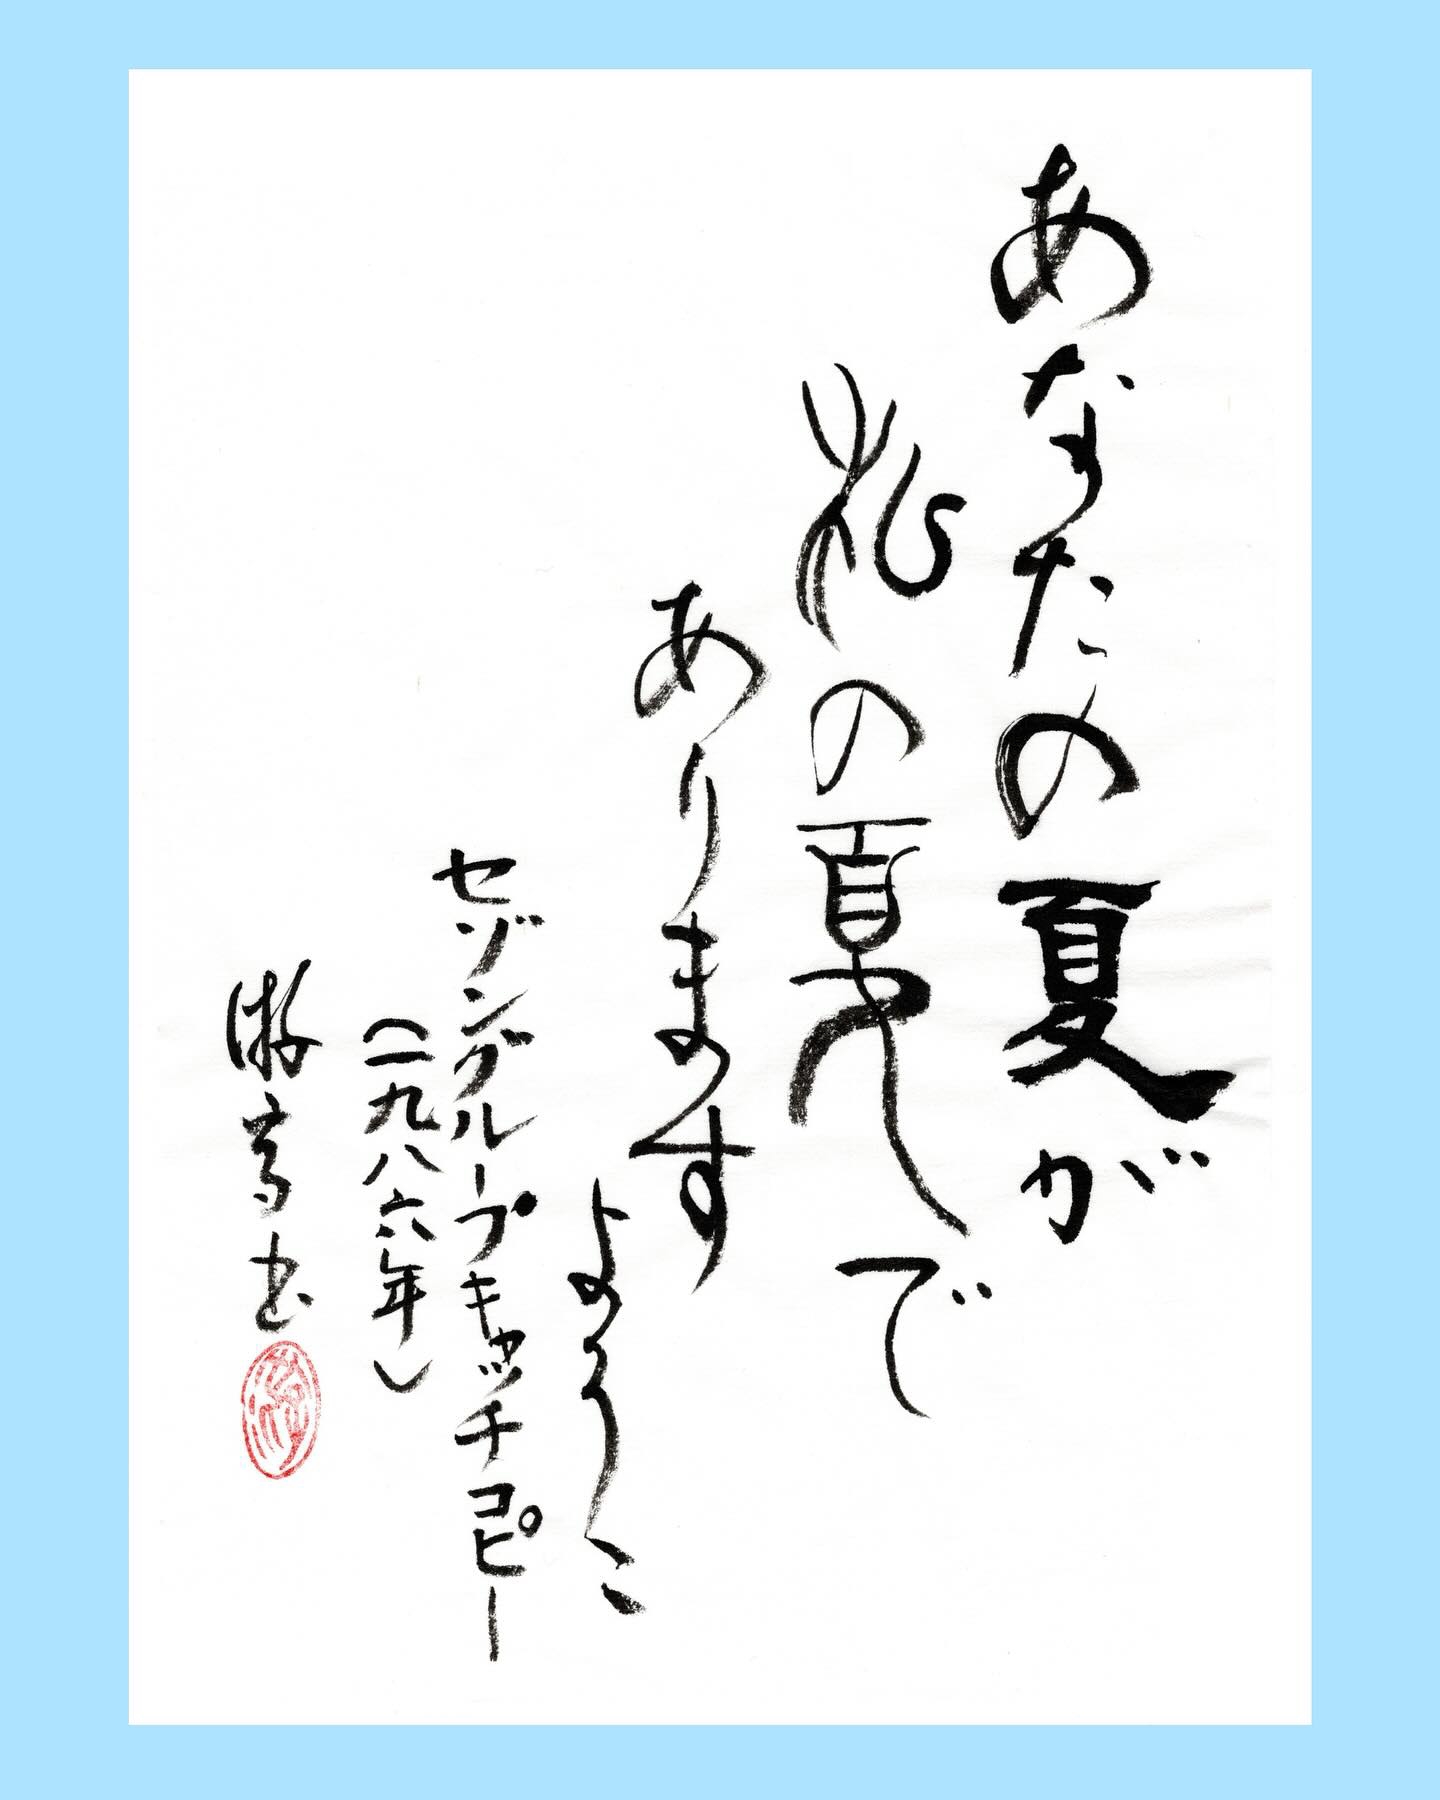 あなたの夏が
私の夏で
あります
ように
セゾングループキャッチコピー
（一九八六年）
書